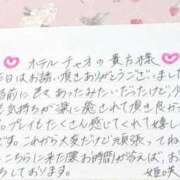 ホテルチャオの貴方様
本日はお誘い頂きありがとうございました
前に色々あったみたいだったけど
気持ちが楽に癒されて頂き良かっ
プレイもたくさん感じてくれて嬉し
す。これから大変だけど頑張ってね
こちらに来た際お時間が合えば、お
しております。
姫咲